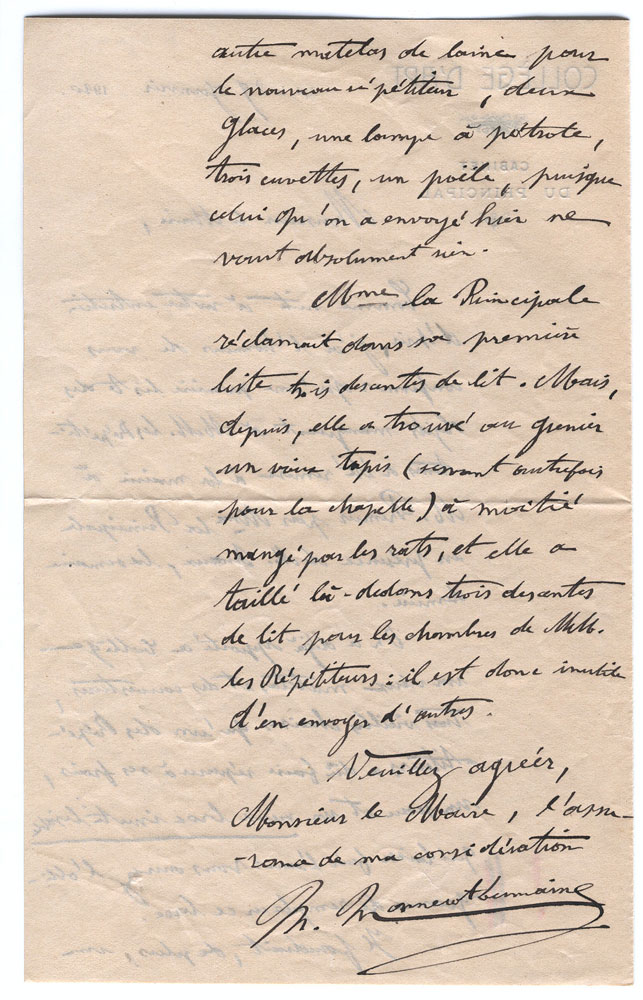 autre matelas de laine pour
le nouveau répétiteur, deux
glaces, une lampe à pétrole,
trois cuvettes, un poêle, puisque
celui qu'on a envoyé hier ne
vaut absolument rien.
Mme la Principale
réclamait dans sa première
liste trois descentes de lit. Mais,
depuis, elle a trouvé au grenier
un vieux tapis (servant autrefois
pour la chapelle) à moitié
mangé par les rats, et elle a
taillé là-dedans trois descentes
de lit pour les chambres de MM.
les Répétiteurs : il est donc inutile
d'en envoyer d'autres.
Veuillez agréer,
Monsieur le Maire, l'assu-
-rance de ma considération